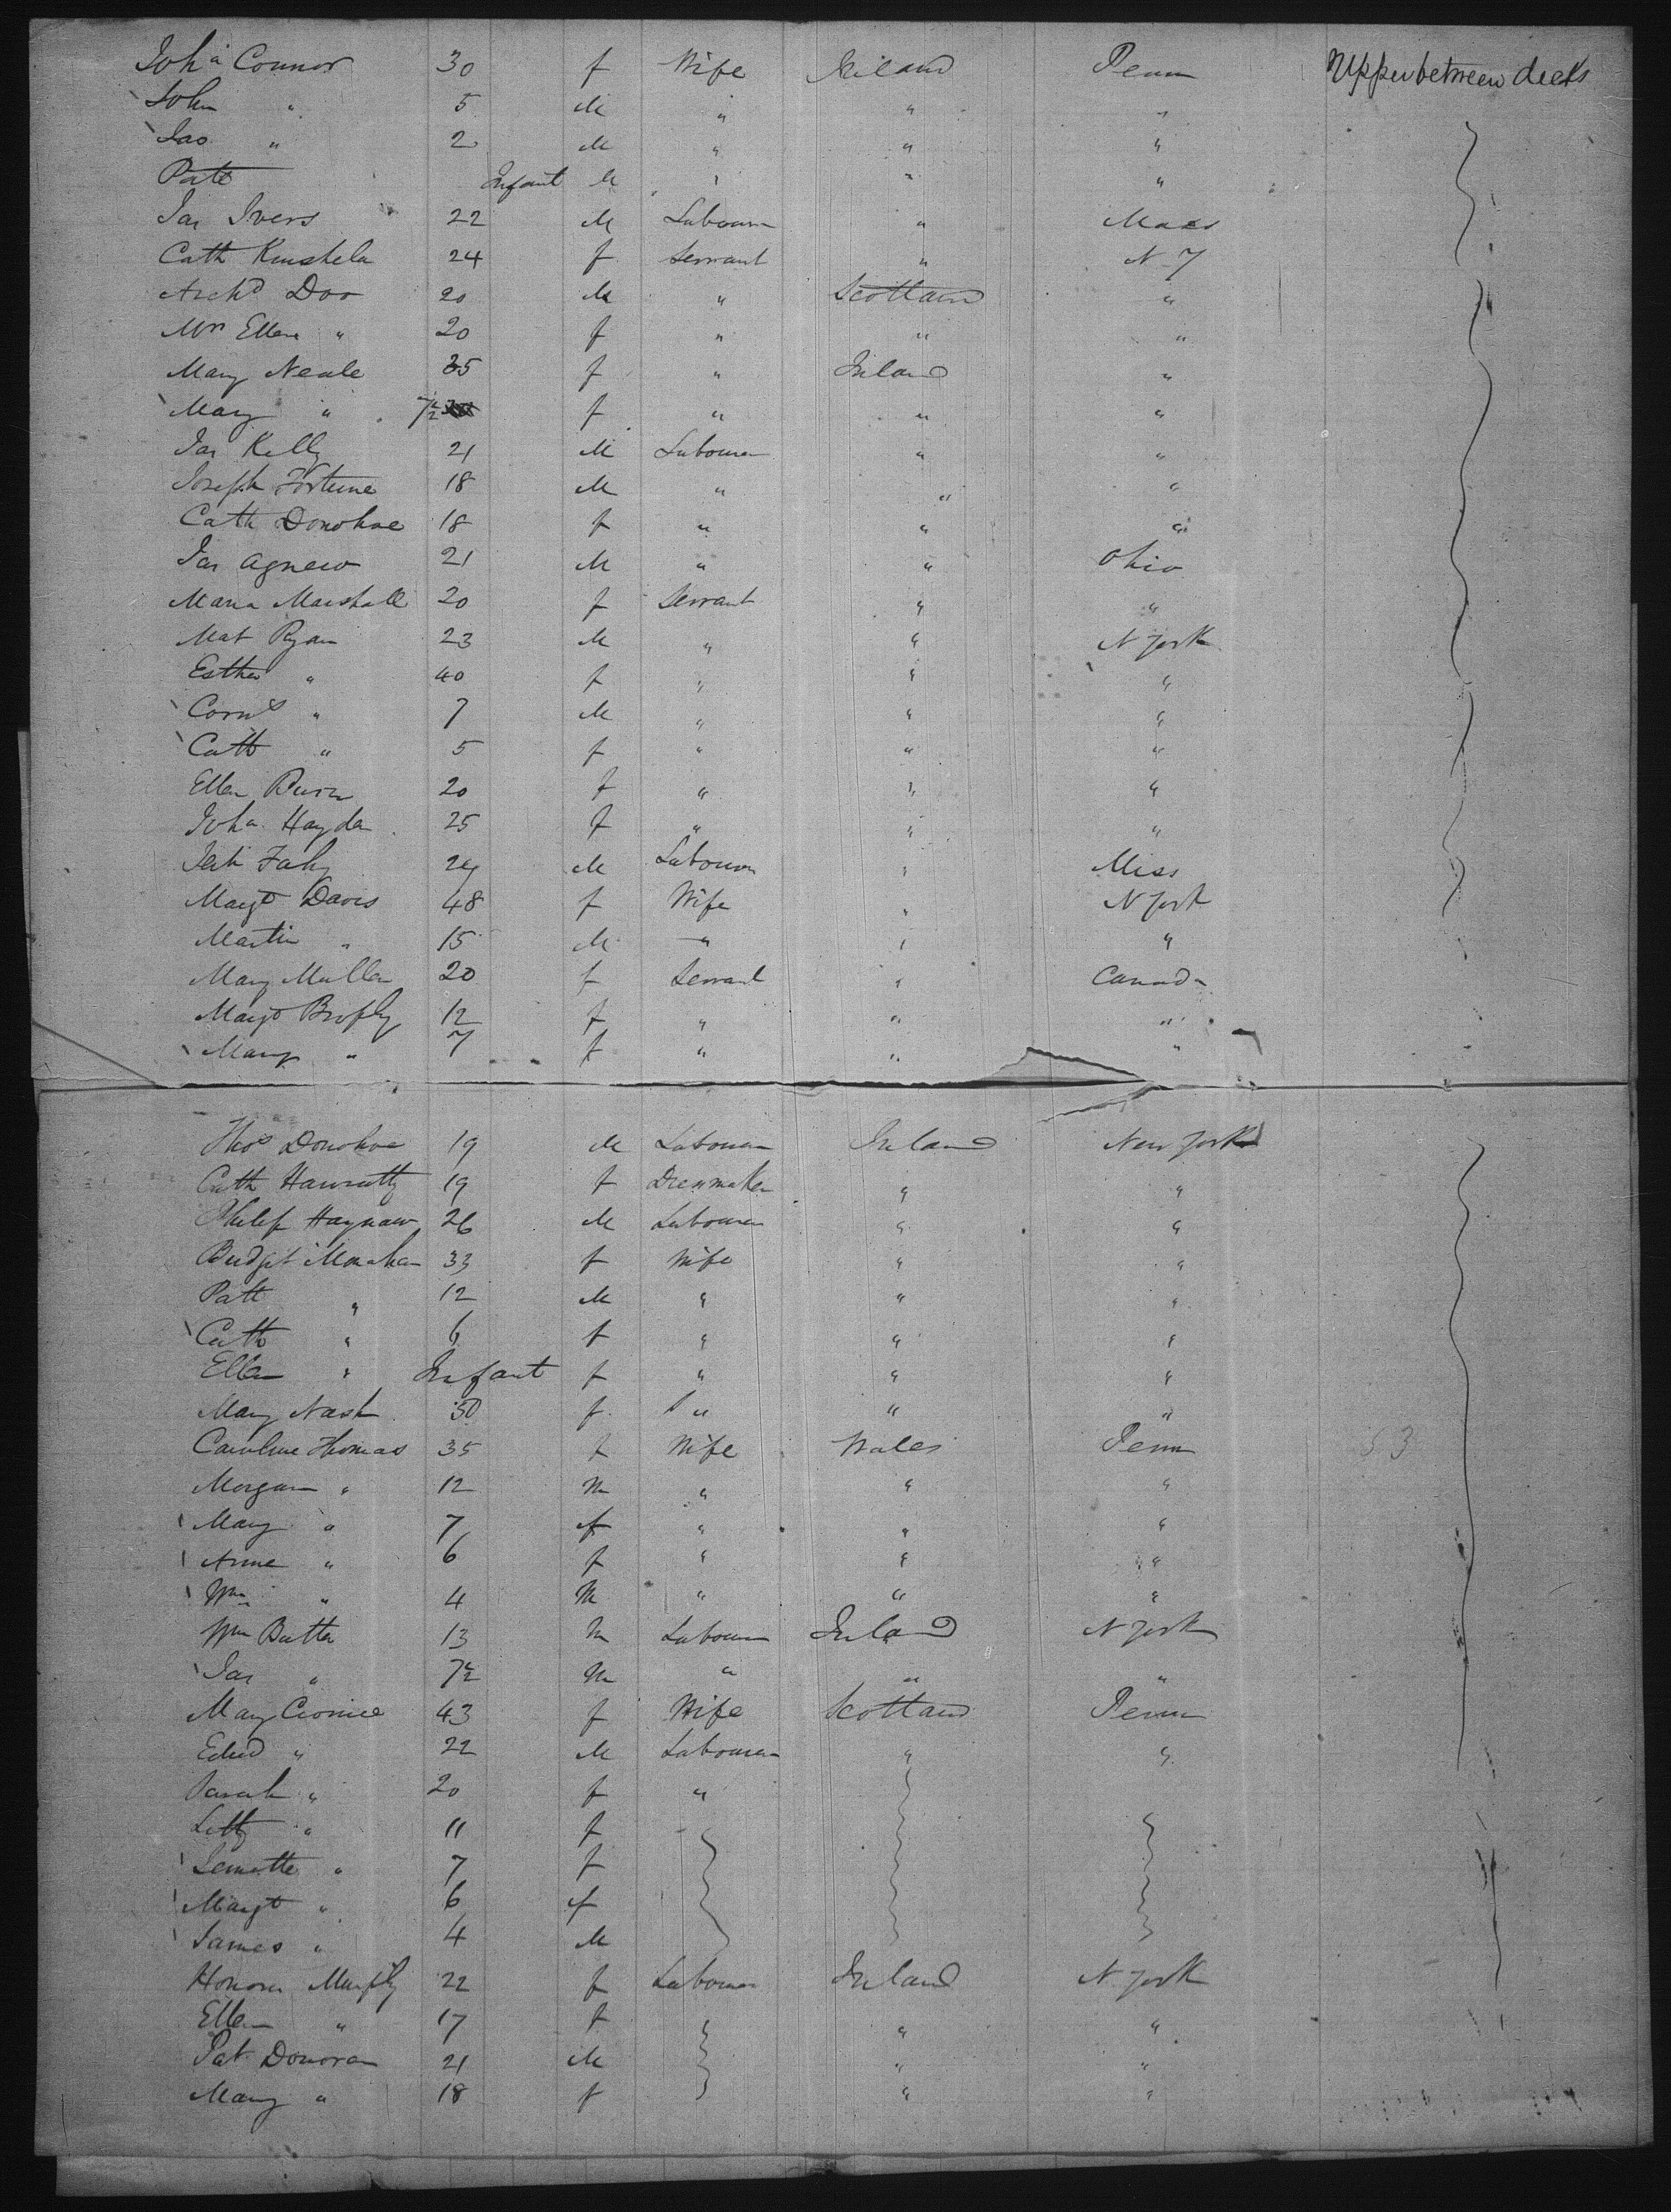 Joha Connor 30 f Wife Ireland Penn Upper between decks
John " 5 M " " "
Jas " 2 M " " "
Patk Infant M " " "
Jas Ivers 22 M Labourer " Mass
Cath Kinshela 24 f Servant " N Y
Archd Doo 20 M " Scotland "
Mrs Ellen " 20 f " " "
Mary Neale 35 f " Ireland "
Mary " 7½ f " " "
Jas Kelly 21 M Labourer " "
Joseph Fortune 18 M " " "
Cath Donohoe 18 f " " "
Jas Agnew 21 M " " Ohio
Maria Marshall 20 f Servant " "
Mat Ryan 23 M " " N York
Esther " 40 f " " "
Corns " 7 M " " "
Cath " 5 f " " "
Ellen 20 f " " "
Joha Hayden 25 f " " "
Fahy M Labourer " Miss
Margt Davis 48 f Wife " N York
Martin " 15 M " " "
Mary Mullen 20 f Servant " Canada
Margt Brophy 12 f " " "
Mary " 7 f " " "
Thos Donohoe 19 M Labourer Ireland New York
Cath Hanratty 19 f Dressmaker " "
Philip 26 M Labourer " "
Bridget Monahan 33 f Wife " "
Patk " 12 M " " "
Cath " 6 f " " "
Ellen " Infant f " " "
Mary Nash 50 f " " "
Caroline Thomas 35 f Wife Wales Penn 53
Morgan " 12 M " " "
Mary " 7 f " " "
Anne " 6 f " " "
Wm " 4 M " " "
Wm Butler 13 M Labourer Ireland N York
Jas " 7½ M " " "
Mary 43 f Wife Scotland Penn
Edwd " 22 M Labourer " "
Sarah " 20 f "
Letty " 11 f
" 7 f
Margt " 6 f
James " 4 M
Honora Murphy 22 f Labourer Ireland N York
Ellen " 17 f " "
Pat Donovan 21 M " "
Mary " 18 f " "